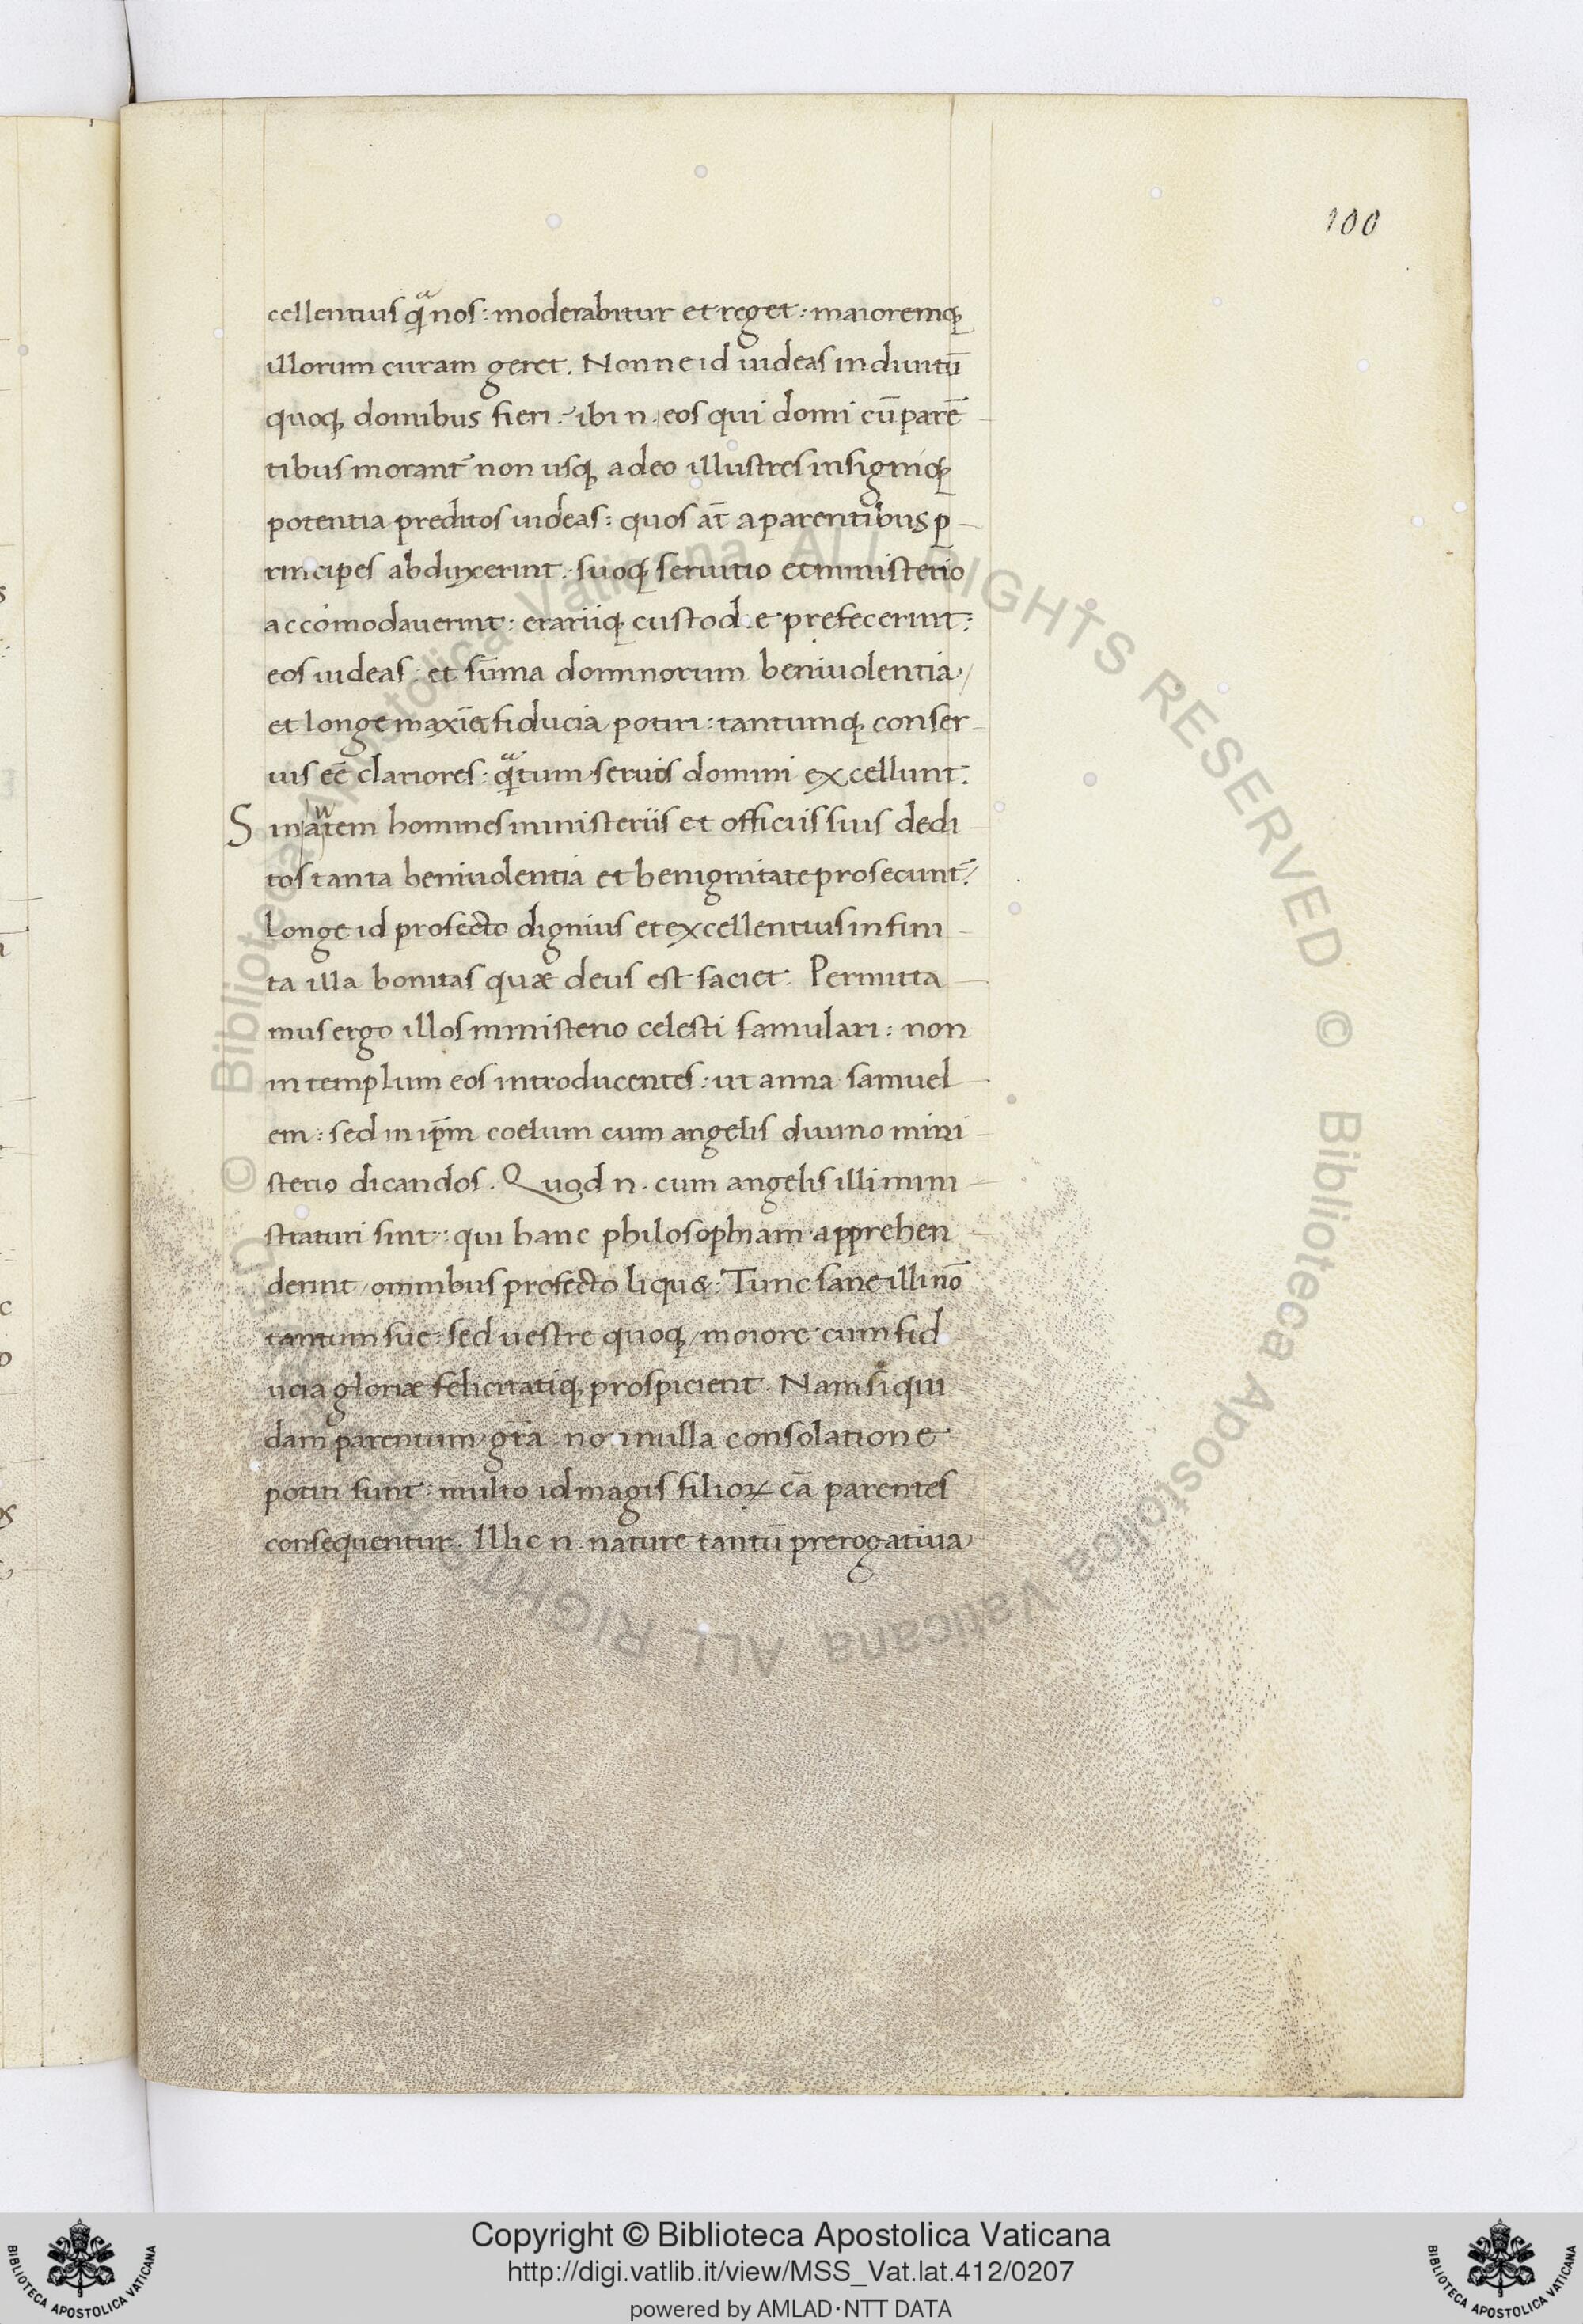 100
cellentius qᵃ nos : moderabitur et reget : maioremq;
illorum curam geret . Nonne id uideas in diuitū
quoq; domibus fieri ? ibi n . eos qui domi cū parē
tibus morant᷑ non usq; adeo illustres insigniq;
potentia preditos uideas : quos at̄ a parentibus p
rincipes abduxerint . suoq; seruitio et ministerio
accōmodauerint : erariiq; custod e prefecerint :
eos uideas : et sūma dominorum beniuolentia /
et longe maxīa fiducia potiri : tantumq; conser
uis eē clariores : qᵃtum seruis domini excellunt .
Sin autem homines ministeriis et officiis suis dedi
tos tanta beniuolentia et benignitate prosecunt᷑ .
Longe id profecto dignius et excellentius infini
ta illa bonitas quæ deus est faciet . Permitta
mus ergo illos ministerio celesti famulari : non
in templum eos introducentes : ut anna samuel
em : sed in ip̄m coelum cum angelis diuino mini
sterio dicandos . Quod n . cum angelis illi mini
straturi sint : qui hanc philosophiam apprehen
derint / omnibus profecto liquet . Tunc sane illi nō
tantum sue : sed uestre quoq; moiore cum fid
ucia gloriæ felicitatiq; prospicient . Nam si qui
dam parentum gr̄a no nulla consolatione
potiti sunt : multo id magis filioꝝ cā parentes
consequentur . Illic n . nature tantū prerogatiua
© Biblioteca Apostolica Vaticana ALL RIGHTS RESERVED © Biblioteca Apostolica Vaticana ALL RIGHTS RESERVED
Copyright © Biblioteca Apostolica Vaticana
http://digi.vatlib.it/view/MSS_Vat.lat.412/0207
powered by AMLAD·NTT DATA
BIBLIOTECA APOSTOLICA VATICANA
BIBLIOTECA APOSTOLICA VATICANA